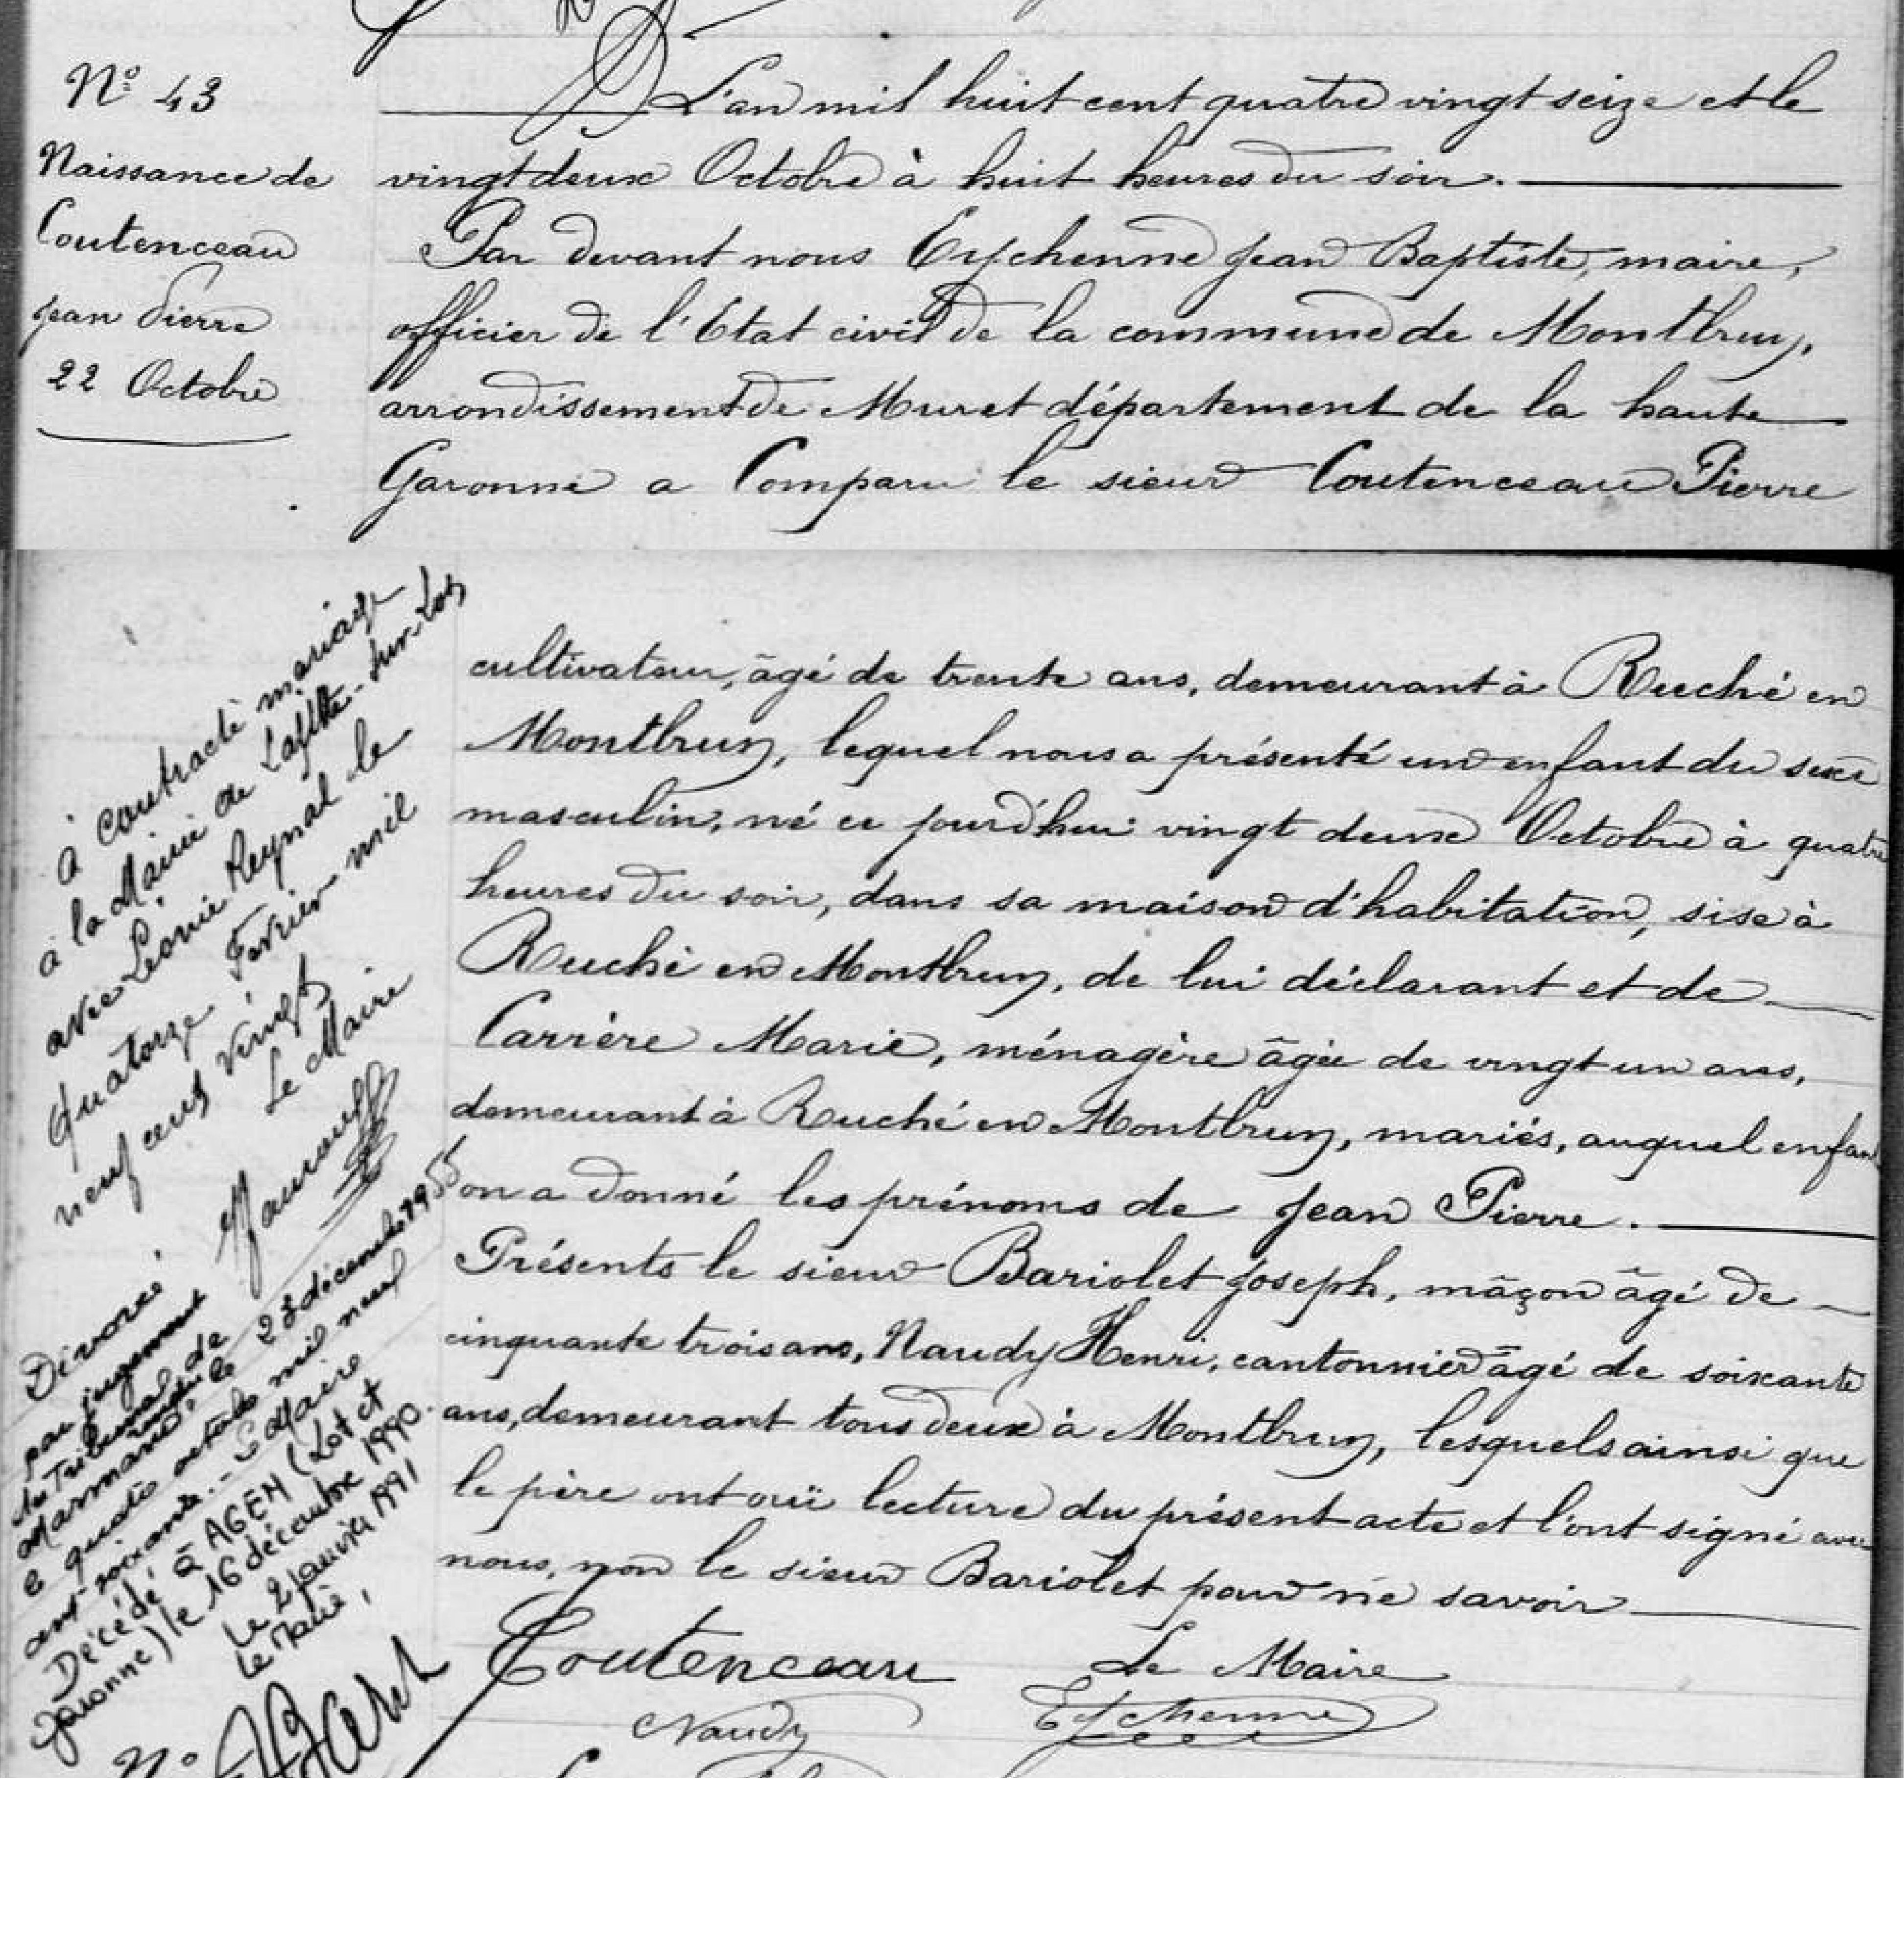 N° 43
Naissance de
Coutenceau
Jean Pierre
22 Octobre
L'an mil huit cent quatre vingt seize et le
vingt deux Octobre à huit heures du soir.
Par devant nous Eychenne Jean Baptiste, maire,
officier de l'Etat civil de la commune de Montbrun,
arrondissement de Muret département de la haute
Garonne a Comparu le sieur Coutenceau Pierre
cultivateur, âgé de trente ans, demeurant à Ruché en
Montbrun, lequel nous a présenté un enfant du sexe
masculin, né ce jourd'hui vingt deux Octobre à quatre
heures du soir, dans sa maison d'habitation, sise à
Ruché en Montbrun, de lui déclarant et de
Carrère Marie, ménagère âgée de vingt un ans,
demeurant à Ruché en Montbrun, mariés, auquel enfant
on a donné les prénoms de Jean Pierre.
Présents le sieur Bariolet Joseph, mâçon âgé de
cinquante trois ans, Naudy Henri, cantonnier âgé de soixante
ans, demeurant tous deux à Montbrun, lesquels ainsi que
le père ont ouï lecture du présent acte et l'ont signé avec
nous, non le sieur Bariolet pour ne savoir
Coutenceau Le Maire
Naudy Eychenne
A contracté mariage
à la Mairie de Lafitte-sur-Lot
avec Léonie Reynal le
quatorze Février mil
neuf cent vingt
Le Maire
Divorcé
par jugement
du Tribunal de
Marmande, rendu le 23 décembre 1955
le quatre octobre mil neuf
cent soixante. - Le Maire
Décédé à AGEN (Lot et
Garonne) le 16 décembre 1990.
Le 2 janvier 1991
Le Maire,
N°